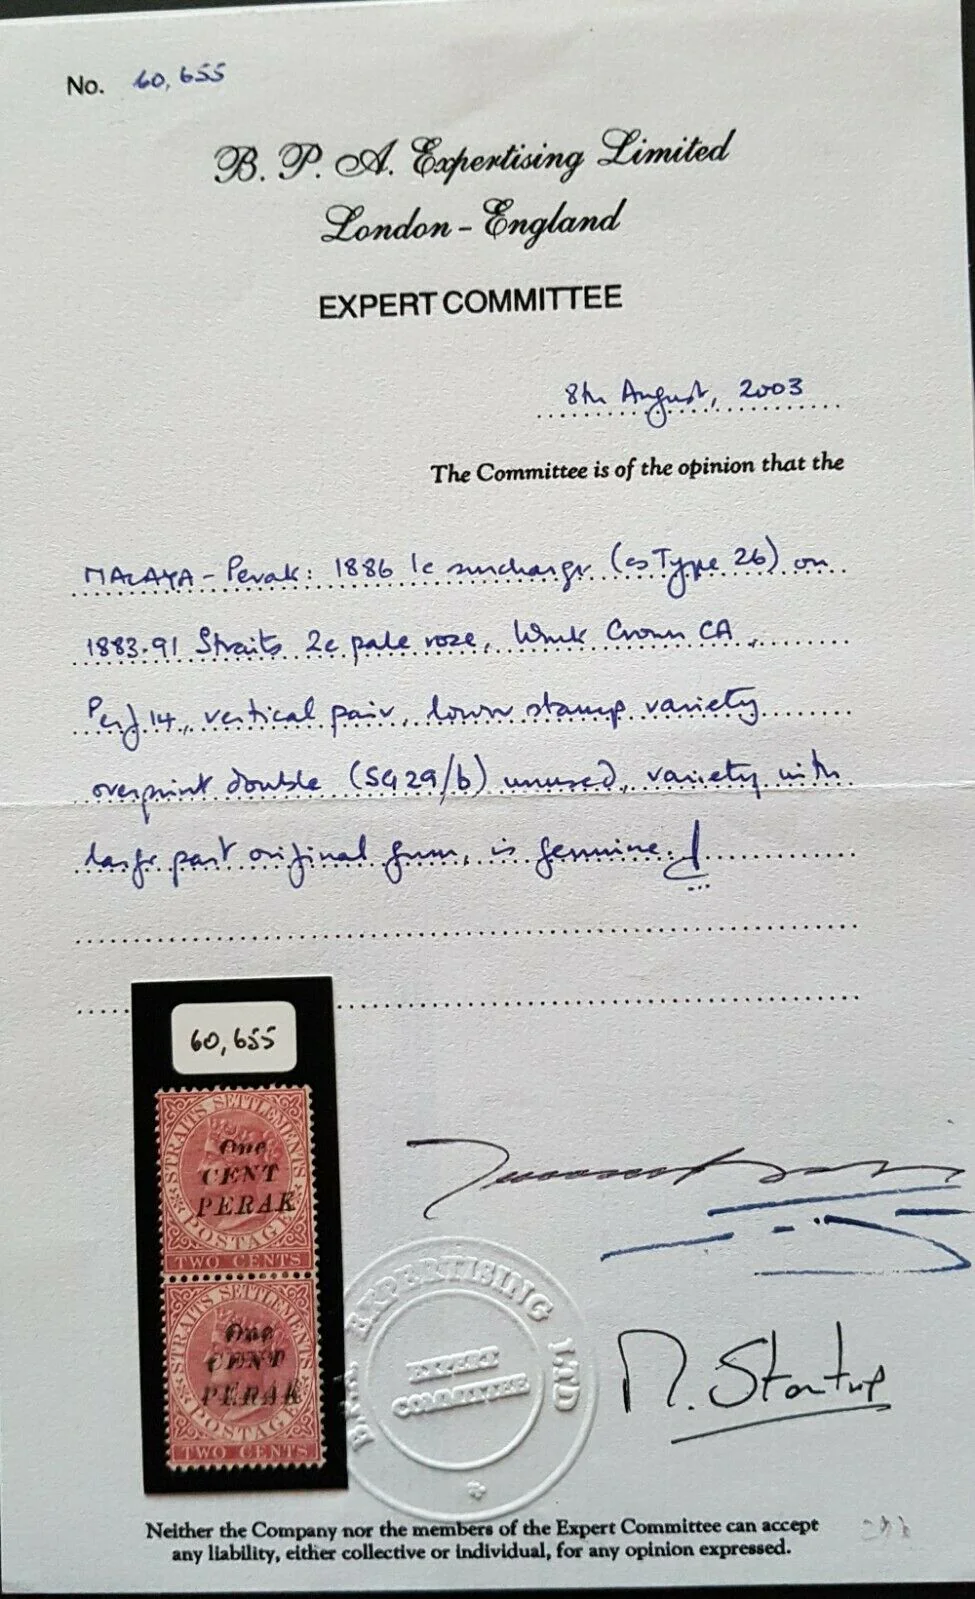 No. 60,655
B. P. A. Expertising Limited
London - England
EXPERT COMMITTEE
8th August, 2003
The Committee is of the opinion that the
MALAYA - Perak: 1886 1c surcharge (as Type 26) on
1883-91 Straits 2c pale rose, Wmk Crown CA,
Perf 14, vertical pair, lower stamp variety
overprint double (SG 29/b) unused, variety with
large part original gum, is genuine.
60,655
STRAITS SETTLEMENTS
One
CENT
PERAK
POSTAGE
TWO CENTS
STRAITS SETTLEMENTS
One
CENT
PERAK
POSTAGE
TWO CENTS
B.P.A. EXPERTISING LTD
EXPERT
COMMITTEE
M. Startup
Neither the Company nor the members of the Expert Committee can accept
any liability, either collective or individual, for any opinion expressed.